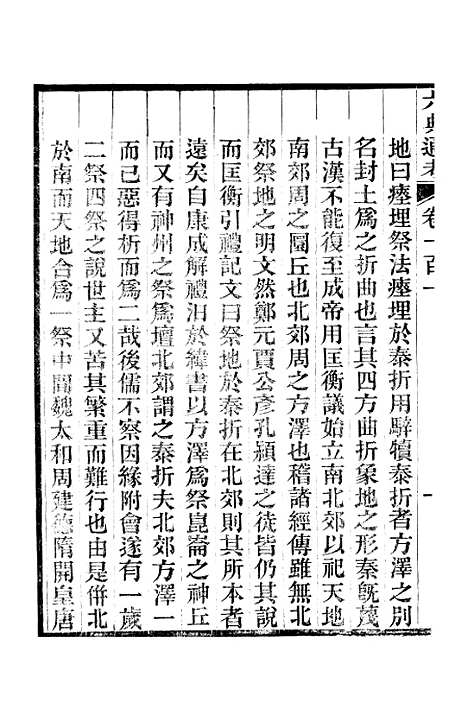 六典通考 卷一百一 一
地曰瘞埋祭法瘞埋於泰折用騂犢泰折者方澤之別
名封土爲之折曲也言其四方曲折象地之形秦旣蔑
古漢不能復至成帝用匡衡議始立南北郊以祀天地
南郊周之圜丘也北郊周之方澤也稽諸經傳雖無北
郊祭地之明文然鄭元賈公彥孔穎達之徒皆仍其說
而匡衡引禮記文曰祭地於泰折在北郊則其所本者
遠矣自康成解禮汨於緯書以方澤爲祭崑崙之神丘
而又有神州之祭爲壇北郊謂之泰折夫北郊方澤一
而已惡得析爲二哉後儒不察因緣附會遂有一歲
二祭四祭之說世主又苦其繁重而難行也由是倂北
於南而天地合爲一祭中閒魏太和周建德隋開皇唐